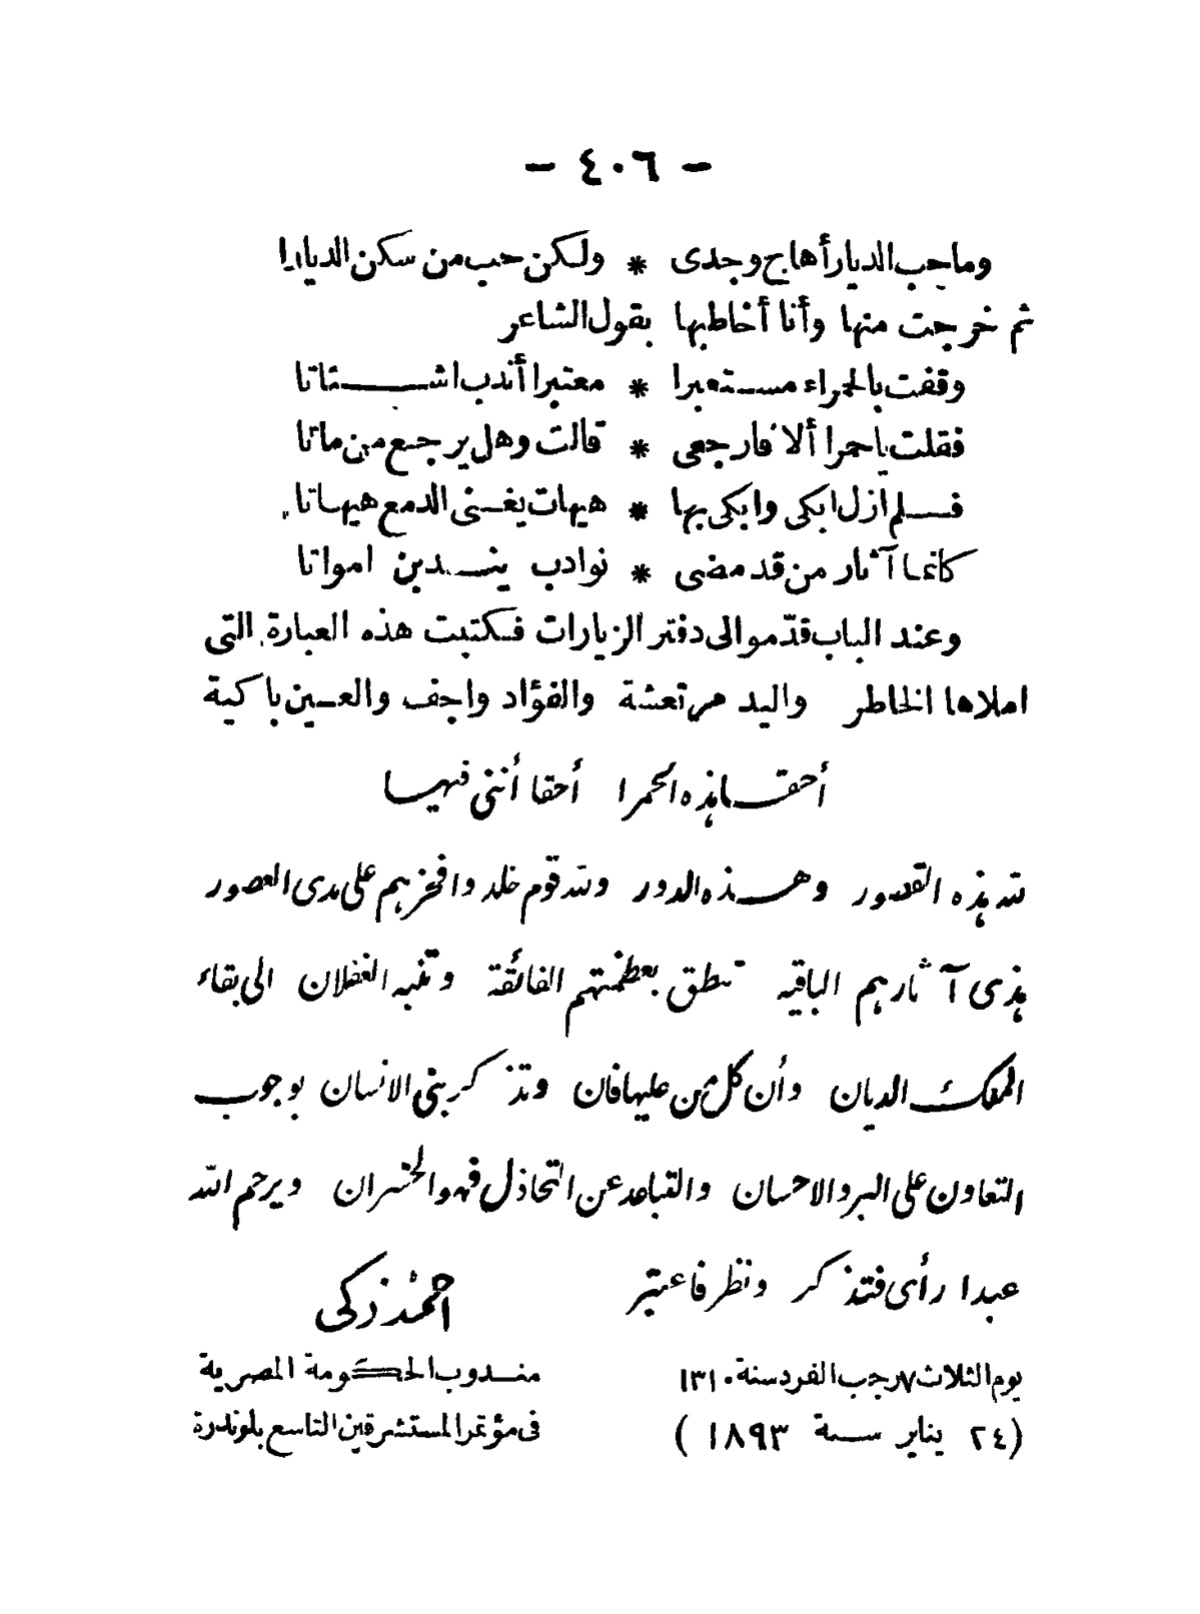 - ٤٠٦ -
وما حب الديار أهاج وجدى * ولكن حب من سكن الديارا
ثم خرجت منها وأنا أخاطبها بقول الشاعر
وقفت بالحمراء مستعبرا * معتبرا أندب اشتاتا
فقلت يا حمرا ألا فارجعى * قالت وهل يرجع من ماتا
فلم أزل ابكى وابكى بها * هيهات يغنى الدمع هيهاتا
كأنما آثار من قد مضى * نوادب يندبن امواتا
وعند الباب قدّموا لى دفتر الزيارات فكتبت هذه العبارة التى
املاها الخاطر واليد مرتعشة والفؤاد واجف والعين باكية
أحقا هذه الحمرا أحقا أننى فيها
لله هذه القصور وهذه الدور ولله قوم خلد وا فخرهم على مدى العصور
هذى آثارهم الباقيه تنطق بعظمتهم الفائقة وتنبه الغفلان الى بقاء
الملك الديان وأن كل من عليها فان وتذكر بنى الانسان بوجوب
التعاون على البر والاحسان والتباعد عن التخاذل فهو الخسران ويرحم الله
عبدا رأى فتذكر ونظر فاعتبر
احمد زكى
يوم الثلاث ٧ رجب الفرد سنة ١٣١٠
(٢٤ يناير سنة ١٨٩٣)
مندوب الحكومة المصرية
فى مؤتمر المستشرقين التاسع بلوندرة